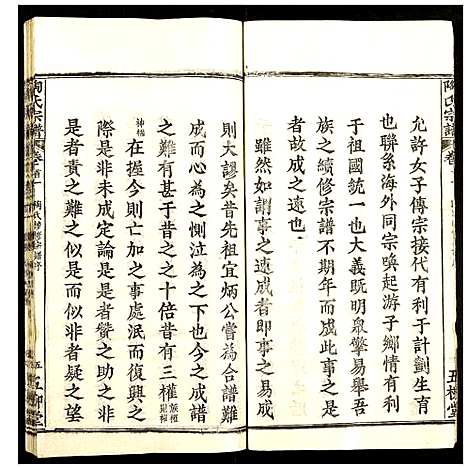 陶氏宗譜
允許女子傳宗接代有利于計劃生育
也聯系海外同宗喚起游子鄉情有利
于祖國統一也大義既明衆擎易舉吾
族之續修宗譜不期年而成此事之是
者故成之速也
雖然如謂事之速成者即事之易成
則大謬矣昔先祖宜炳公嘗為合譜難
成而心惻泣為之下也今之成譜
之難有甚于昔之十倍昔有三權族權
神權
在握今則亡加之事處泯而復興之
際是非未成定論是者贊之助之非
是者責之難之似是而非者疑之望
陶氏宗譜
卷首
五
五柳堂